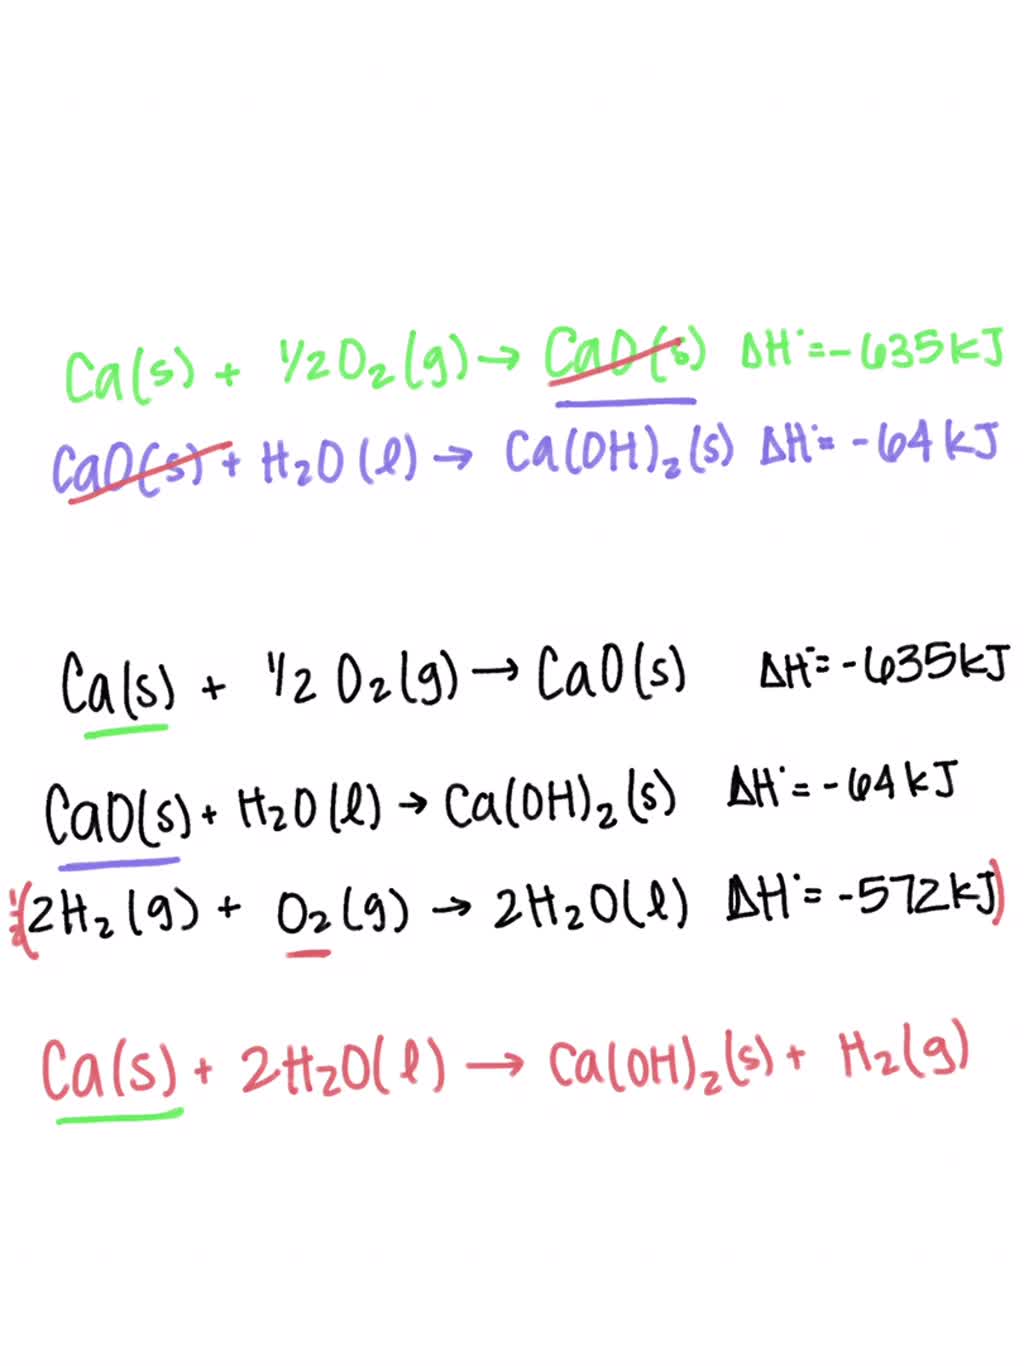 Ca(s) + 1/2 O₂(g) → CaO(s) ΔH°= -635kJ
CaO(s) + H₂O(l) → Ca(OH)₂(s) ΔH°= -64kJ
Ca(s) + 1/2 O₂(g) → CaO(s) ΔH°= -635kJ
CaO(s) + H₂O(l) → Ca(OH)₂(s) ΔH°= -64kJ
1/2(2H₂(g) + O₂(g) → 2H₂O(l) ΔH°= -572kJ)
Ca(s) + 2H₂O(l) → Ca(OH)₂(s) + H₂(g)